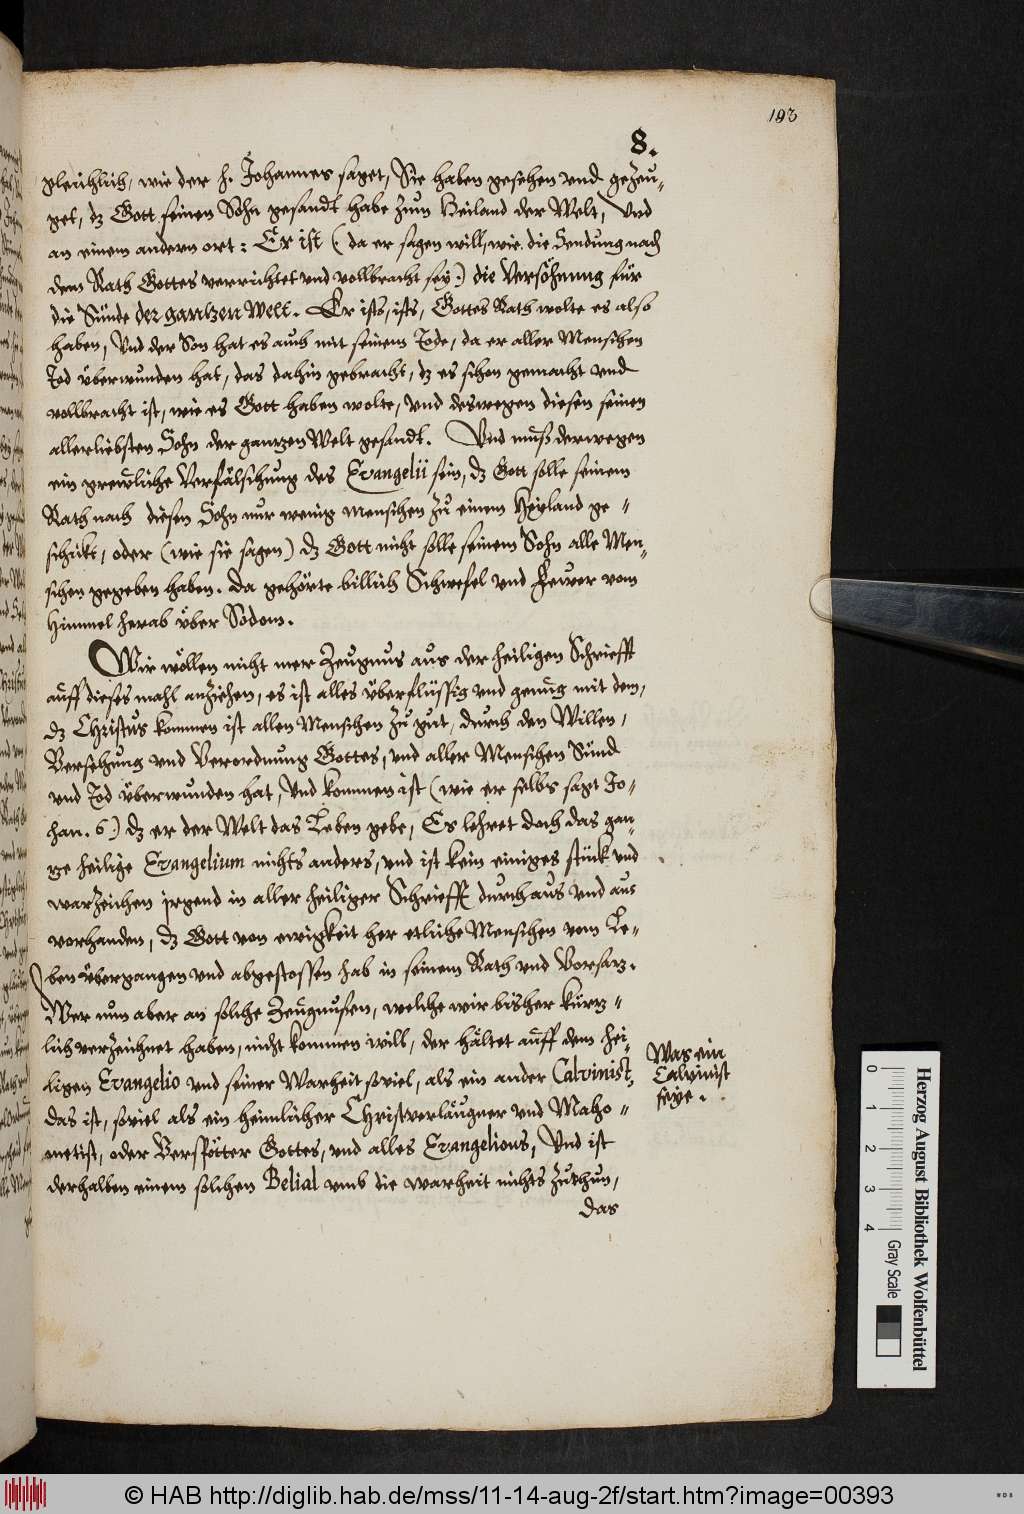 193
8.
gleichlich, wie der h. Johannes saget, Sie haben gesehen vnd gezeu-
get, dz Gott seinen Sohn gesandt habe zum Heiland der Welt, Vnd
an einem andern ort: Er ist (da er sagen will, wie die Sendung nach
dem Rath Gottes verrichtet vnd vollbracht sey.) die Versöhnung für
die Sünde der gantzen Welt. Er ists, ists, Gottes Rath wolte es also
haben, Vnd der Son hat es auch mit seinem Tode, da er aller Menschen
Tod überwunden hat, das dahin gebracht, dz es schon gemacht vnd
vollbracht ist, wie es Gott haben wolte, Vnd deswegen diesen seinen
allerliebsten Sohn der gantzen Welt gesandt. Vnd muß derwegen
ein grewliche Verfälschung des Evangelii sein, dz Gott solle seinem
Rath nach diesen Sohn nur wenig menschen zu einem Heyland ge-
schickt, oder (wie sie sagen) dz Gott nicht solle seinem Sohn alle Men-
schen gegeben haben. Da gehörte billich Schwefel vnd Fewer vom
Himmel herab über Sodom.
Wir wöllen nicht mer Zeugnus aus der heiligen Schriefft
auff dieses mahl anziehen, es ist alles überflüssig vnd genug mit dem,
dz Christus kommen ist allen Menschen zu gut, durch den Willen,
Versehung vnd Verordnung Gottes, vnd aller Menschen Sünd
vnd Tod überwunden hat, Vnd kommen ist (wie er selbs sagt Jo-
han. 6.) dz er der Welt das Leben gebe, Es lehret doch das gan-
tze heilige Evangelium nichts anders, vnd ist kein einiges stück vnd
warzeichen irgend in aller heiliger Schriefft durchaus vnd aus
vorhanden, dz Gott von ewigkeit her etliche Menschen vom Le-
ben übergangen vnd abgestossen hab in seinem Rath vnd Vorsatz.
Wer nun aber an solche Zeugnussen, welche wir bisher kürtz-
lich verzeichnet haben, nicht kommen will, der hältet auff dem hei-
ligen Evangelio vnd seiner Warheit soviel, als ein ander Calvinist,
das ist, soviel als ein heimlicher Christverläugner vnd Maho-
metist, oder Verspötter Gottes, vnd alles Evangelions, Vnd ist
derhalben einem solchen Belial vmb die warheit nichts zuthun,
das
Was ein
Calvinist
seye.
0 1 2 3 4
Gray Scale
Herzog August Bibliothek Wolfenbüttel
© HAB http://diglib.hab.de/mss/11-14-aug-2f/start.htm?image=00393